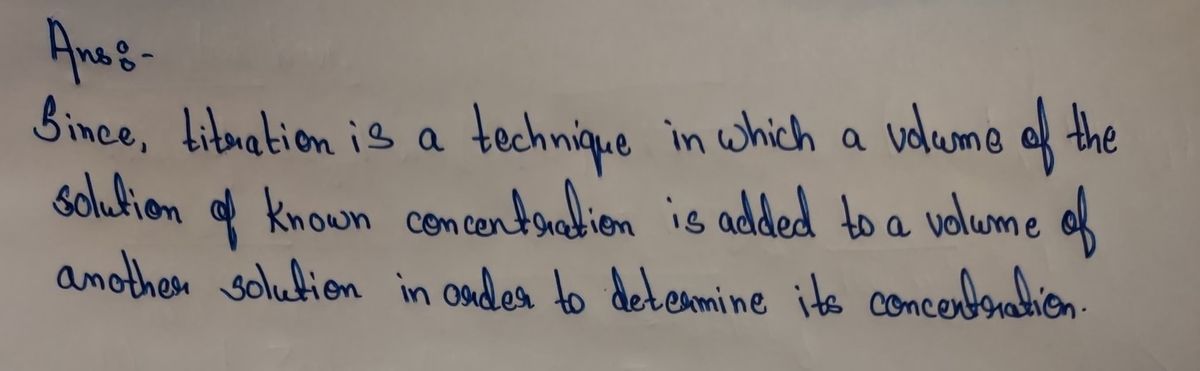 Ans:-
Since, titration is a technique in which a volume of the
solution of known concentration is added to a volume of
another solution in order to determine its concentration.